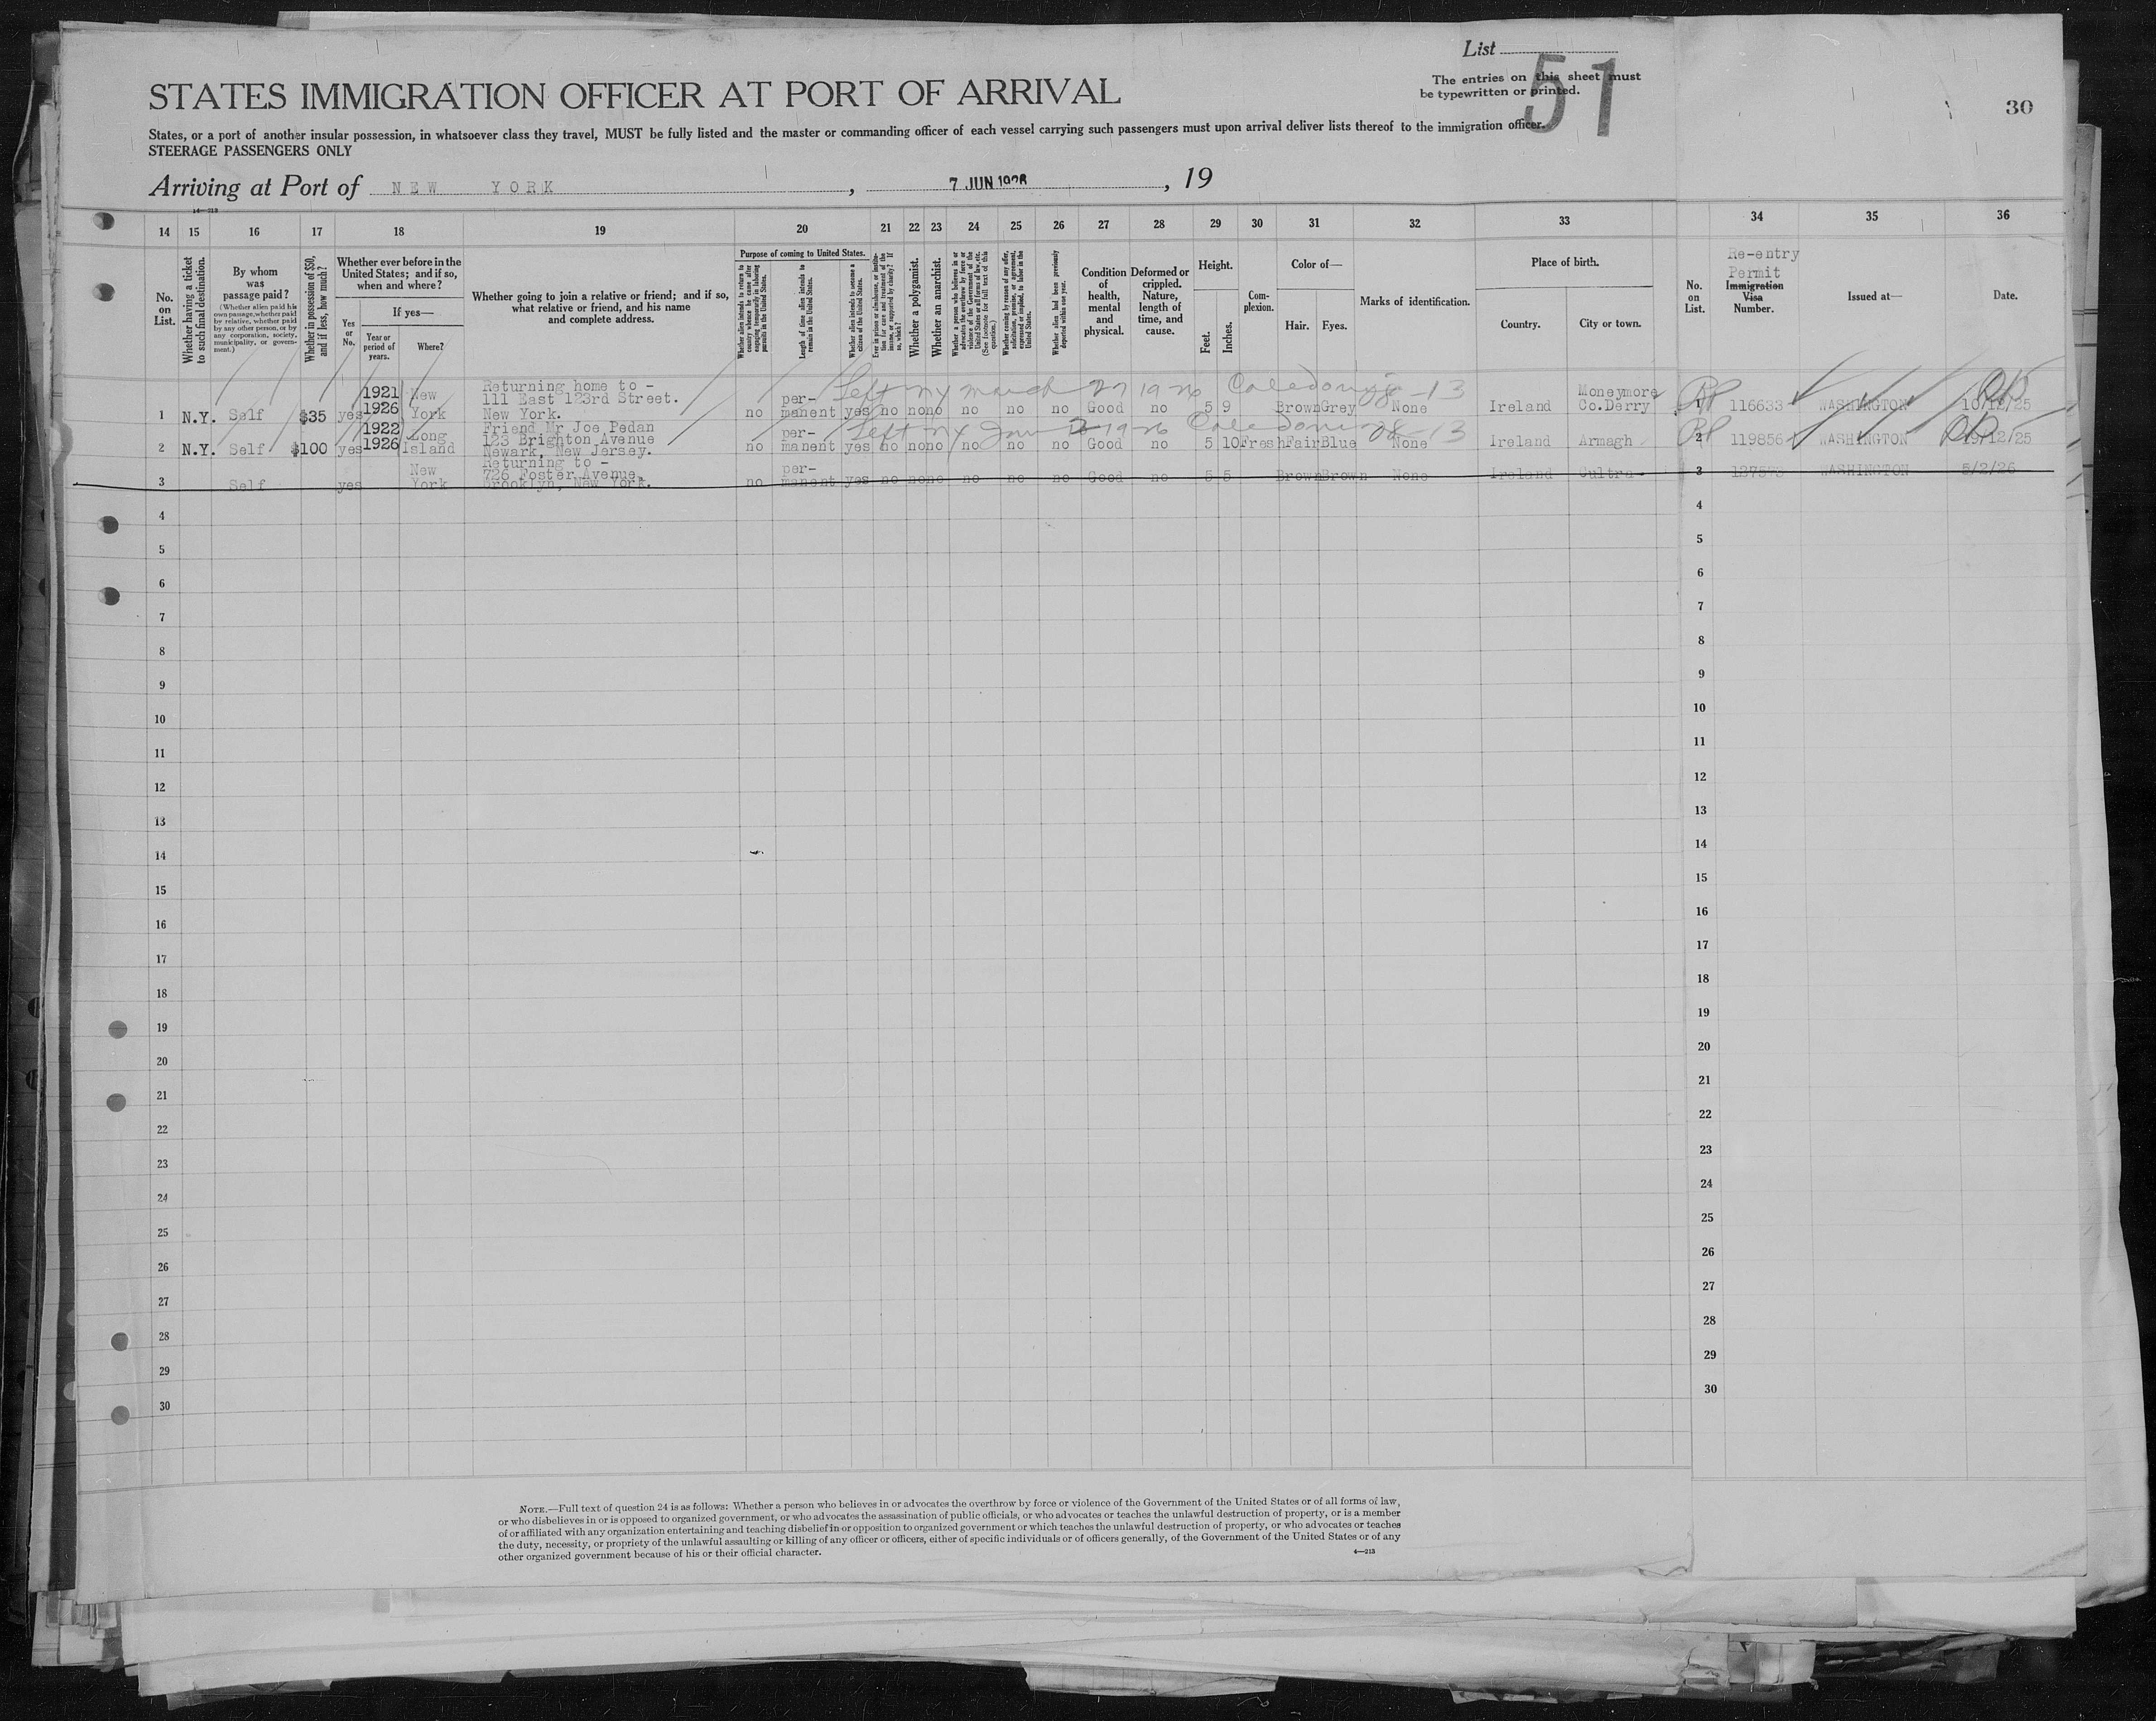 List
51
The entries on this sheet must
be typewritten or printed.
30
STATES IMMIGRATION OFFICER AT PORT OF ARRIVAL
States, or a port of another insular possession, in whatsoever class they travel, MUST be fully listed and the master or commanding officer of each vessel carrying such passengers must upon arrival deliver lists thereof to the immigration officer.
STEERAGE PASSENGERS ONLY
Arriving at Port of NEW YORK, 7 JUN 1926, 19
14 15 16 17 18 19 20 21 22 23 24 25 26 27 28 29 30 31 32 33 34 35 36
No. on List.
Whether having a ticket to such final destination.
By whom was passage paid?
(Whether alien paid his own passage, whether paid by relative, whether paid by any other person, or by any corporation, society, municipality, or government.)
Whether in possession of $50, and if less, how much?
Whether ever before in the United States; and if so, when and where?
Yes or No.
If yes—
Year or period of years.
Where?
Whether going to join a relative or friend; and if so, what relative or friend, and his name and complete address.
Purpose of coming to United States.
Whether alien intends to return to country whence he came after engaging temporarily in laboring pursuits in the United States.
Length of time alien intends to remain in the United States.
Whether alien intends to become a citizen of the United States.
Ever in prison or almshouse, or institution for care and treatment of the insane, or supported by charity? If so, which?
Whether a polygamist.
Whether an anarchist.
Whether a person who believes in or advocates the overthrow by force or violence of the Government of the United States or all forms of law, etc. (See footnote for full text of this question.)
Whether coming by reason of any offer, solicitation, promise, or agreement, expressed or implied, to labor in the United States.
Whether alien had been previously deported within one year.
Condition of health, mental and physical.
Deformed or crippled. Nature, length of time, and cause.
Height.
Feet. Inches.
Complexion.
Color of—
Hair. Eyes.
Marks of identification.
Place of birth.
Country. City or town.
No. on List.
Re-entry
Permit
Immigration Visa Number.
Issued at—
Date.
Left NY March 27 1926 Caledonia 28-13
1 N.Y. Self $35 yes 1921 1926 New York Returning home to - 111 East 123rd Street. New York. no per-manent yes no no no no no no Good no 5 9 Brown Grey None Ireland Moneymore Co.Derry 1 116633 WASHINGTON 10/12/25
Left NY Jan 1926 Caledonia 28-13
2 N.Y. Self $100 yes 1922 1926 Long Island Friend Mr Joe Pedan 123 Brighton Avenue Newark, New Jersey. no per-manent yes no no no no no no Good no 5 10 Fresh Fair Blue None Ireland Armagh 2 119856 WASHINGTON /12/25
3 Self yes New York Returning to - 726 Foster Avenue, Brooklyn, New York. no per-manent yes no no no no no no Good no 5 5 Brown Brown None Ireland Cultra 3 WASHINGTON 5/2/26
4 4
5 5
6 6
7 7
8 8
9 9
10 10
11 11
12 12
13 13
14 14
15 15
16 16
17 17
18 18
19 19
20 20
21 21
22 22
23 23
24 24
25 25
26 26
27 27
28 28
29 29
30 30
NOTE.—Full text of question 24 is as follows: Whether a person who believes in or advocates the overthrow by force or violence of the Government of the United States or of all forms of law,
or who disbelieves in or is opposed to organized government, or who advocates the assassination of public officials, or who advocates or teaches the unlawful destruction of property, or is a member
of or affiliated with any organization entertaining and teaching disbelief in or opposition to organized government or which teaches the unlawful destruction of property, or who advocates or teaches
the duty, necessity, or propriety of the unlawful assaulting or killing of any officer or officers, either of specific individuals or of officers generally, of the Government of the United States or of any
other organized government because of his or their official character.